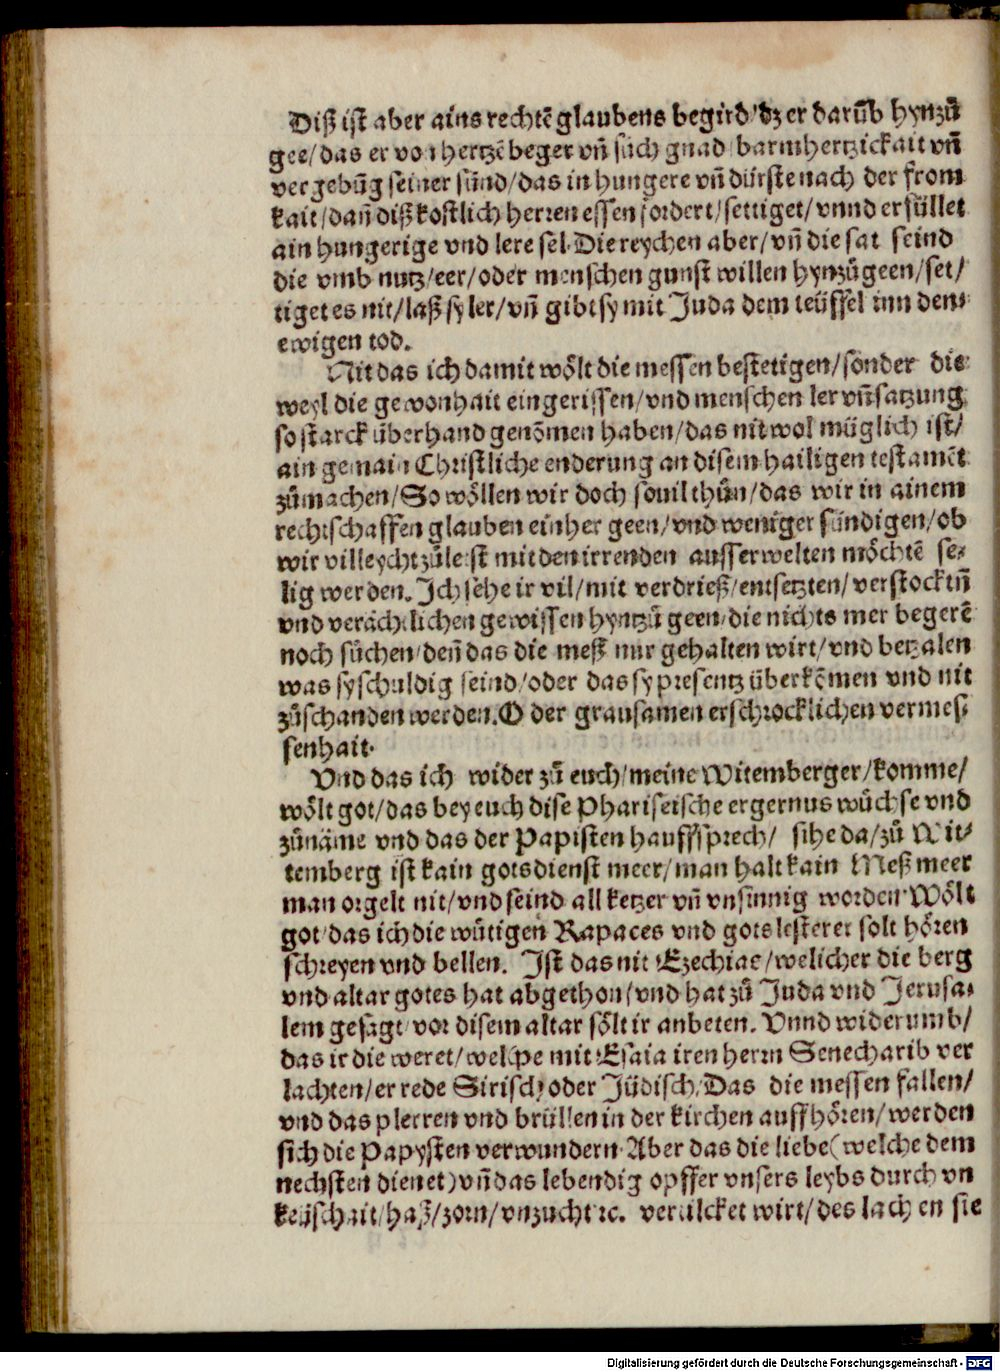 Diß ist aber ains rechtē glaubens begird/ dz er darūb hynzů
gee/ das er von hertzē beger vñ sůch gnad/ barmhertzickait vñ
vergebūg seiner sünd/ das in hungere vñ dürste nach der from
kait/ dañ diß kostlich herren essen fordert/ settiget/ vnnd erfüllet
ain hungerige vnd lere sel. Die reychen aber/ vñ die sat seind
die vmb nutz/ eer/ oder menschen gunst willen hynzů geen/ set/
tiget es nit/ laß sy ler/ vñ gibt sy mit Juda dem teüffel inn den
ewigen tod.
Nit das ich damit wölt die messen bestetigen/ sonder die
weyl die gewonhait eingerissen/ vnd menschen ler vñ satzung
so starck überhand genōmen haben/ das nit wol müglich ist/
ain gemain Christliche enderung an disem hailigen testamēt
zůmachen/ So wöllen wir doch souil thůn/ das wir in ainem
rechtschaffen glauben einher geen/ vnd weniger sündigen/ ob
wir villeycht zůletst mit den irrenden ausserwelten möchtē se⸗
lig werden. Ich sehe ir vil/ mit verdrieß/ entsetzten/ verstocktñ
vnd verächtlichen gewissen hyntzů geen/ die nichts mer begerē
noch sůchen/ deñ das die meß nur gehalten wirt/ vnd betzalen
was sy schuldig seind/ oder das sy presentz überkōmen vnd nit
zůschanden werden. O der grausamen erschrocklichen vermes⸗
senhait.
Vnd das ich wider zů euch/ meine Witemberger/ komme/
wölt got/ das bey euch dise Phariseische ergernus wůchse vnd
zůnäme vnd das der Papisten hauff sprech/ sihe da/ zů Wit⸗
temberg ist kain gotsdienst meer/ man halt kain Meß meer
man orgelt nit/ vnd seind all ketzer vñ vnsinnig worden. Wölt
got/ das ich die wütigen Rapaces vnd gotslesterer solt hören
schreyen vnd bellen. Ist das nit Ezechiae/ welicher die berg
vnd altar gotes hat abgethon/ vnd hat zů Juda vnd Jerusa⸗
lem gesagt/ vor disem altar sölt ir anbeten. Vnnd widerumb/
das ir die weret/ welche mit Esaia iren herrn Senecharib ver
lachten/ er rede Sirisch oder Jüdisch/ Das die messen fallen/
vnd das plerren vnd brüllen in der kirchen auffhören/ werden
sich die Papysten verwundern. Aber das die liebe (welche dem
nechsten dienet) vñ das lebendig opffer vnsers leybs durch vn
keüschait/ haß/ zorn/ vnzucht ꝛc. vertilcket wirt/ des lachen sie
Digitalisierung gefördert durch die Deutsche Forschungsgemeinschaft - DFG